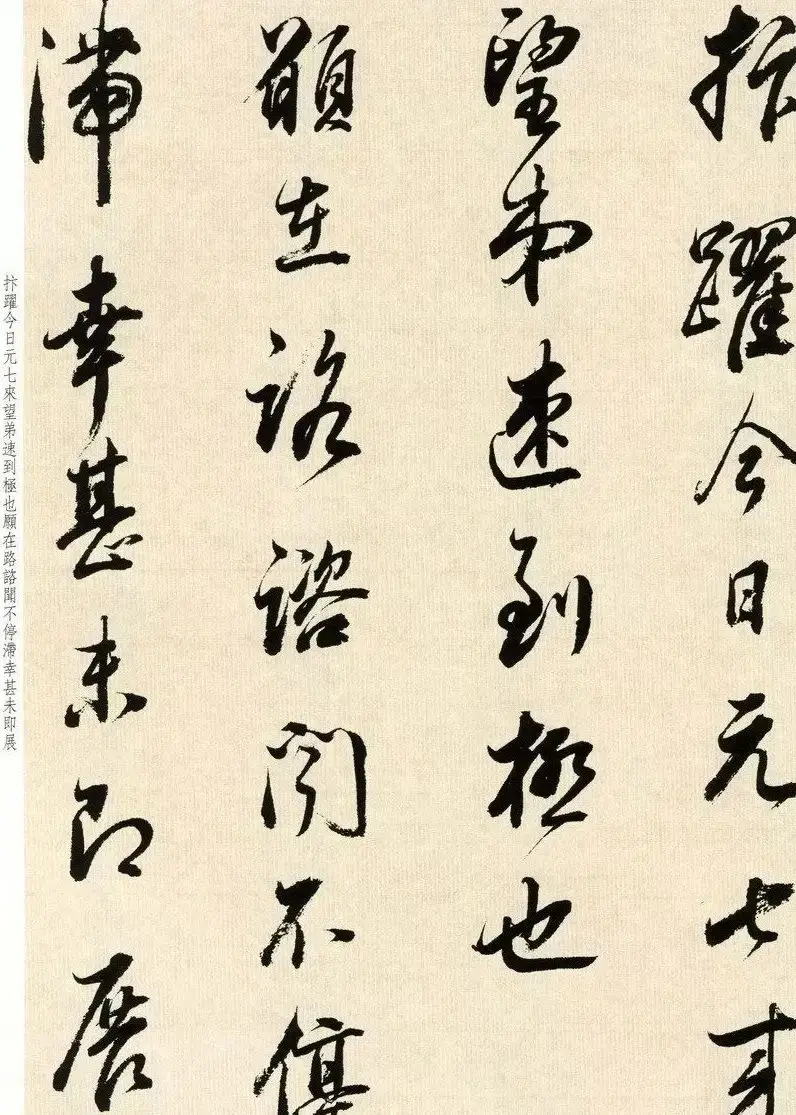 抃躍今日元七来
望弟速到極也
願在路諮聞不停
滯幸甚未即展
抃躍今日元七來望弟速到極也願在路諮聞不停滯幸甚未即展